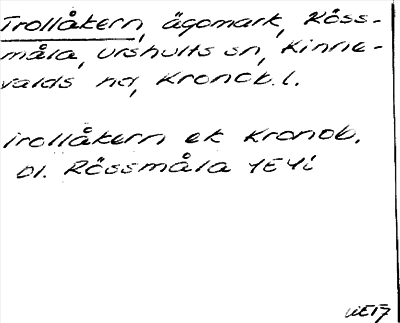 Trollåkern, ägomark, Röss-
måla, Urshults sn, Kinne-
valds hd, Kronob. l.
Trollåkern ek Kronob.
Bl. Rössmåla 4E4i